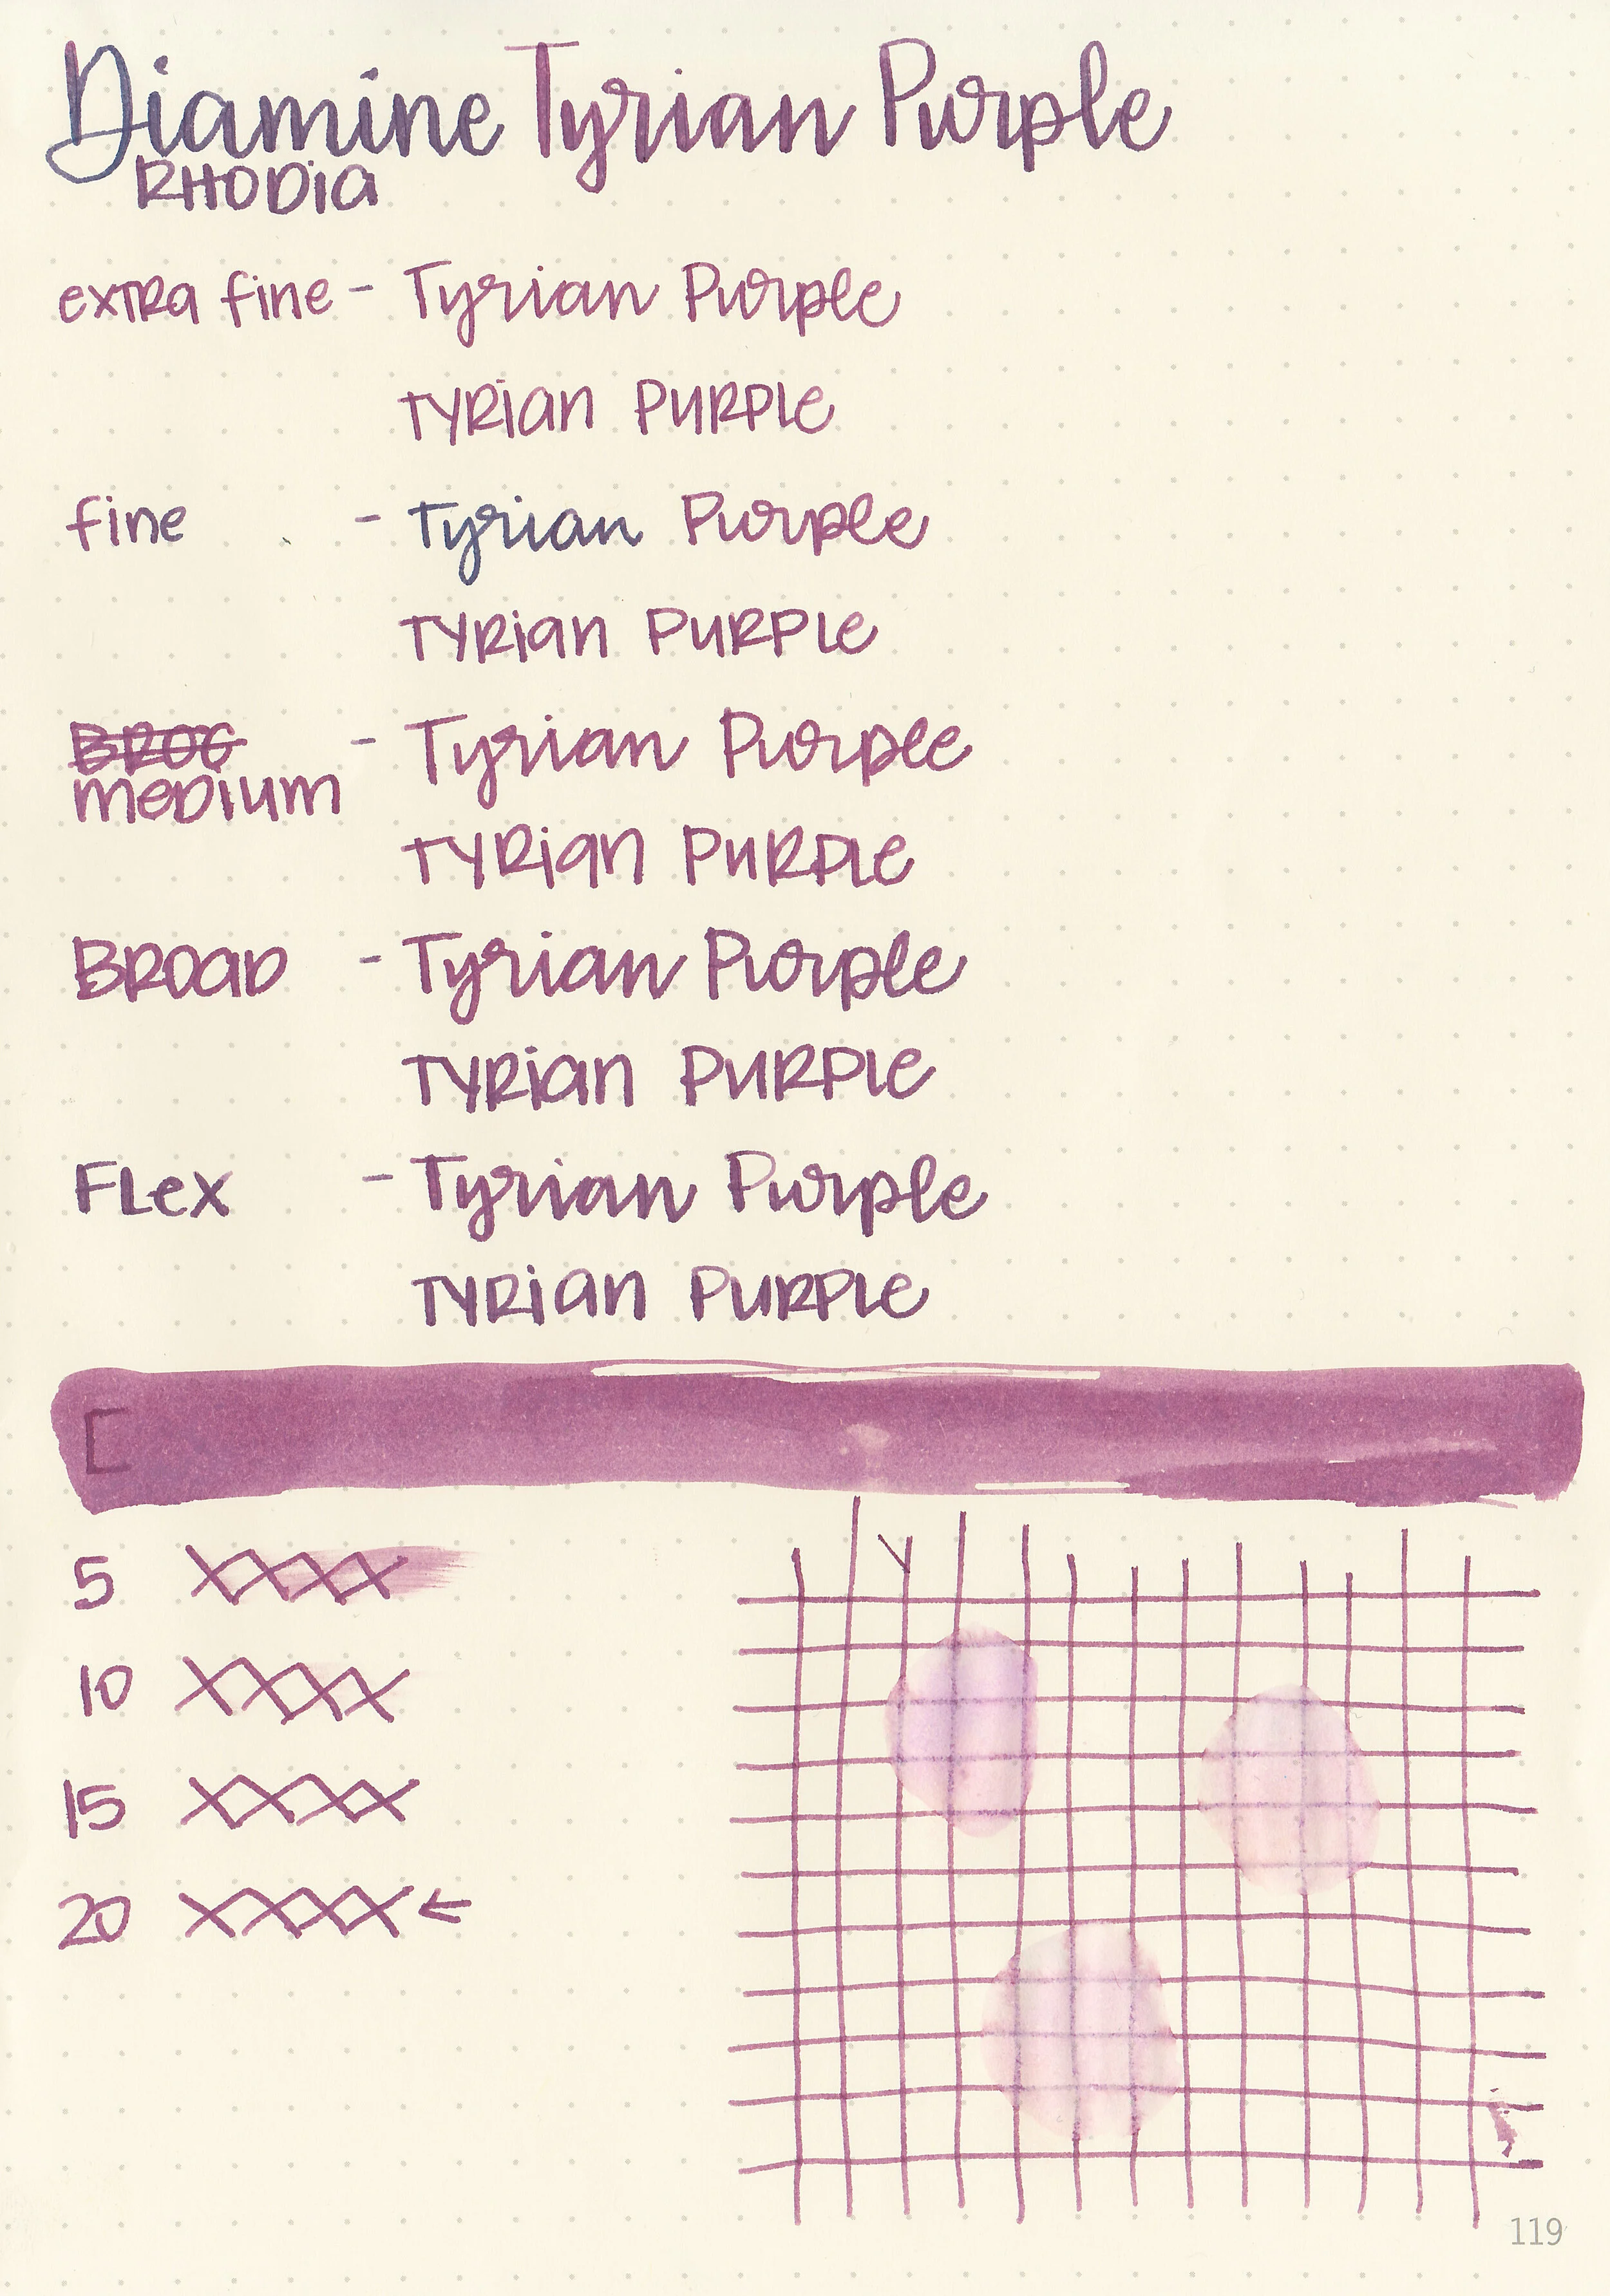 Diamine Tyrian Purple
RHODia
exTRa fine - Tyrian Purple
TYRian PURPLe
fine - Tyrian Purple
TYRian PURPLe
BROC - Tyrian Purple
meDium
TYRian PURPLe
BROaD - Tyrian Purple
TYRian PURPLe
FLex - Tyrian Purple
TYRian PURPLe
5 XXXX
10 XXXX
15 XXXX
20 XXXX ←
119